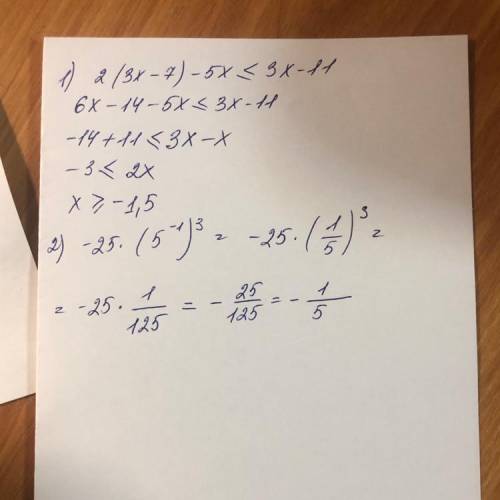 1) 2(3x-7)-5x ≤ 3x-11
6x-14-5x ≤ 3x-11
-14+11 ≤ 3x-x
-3 ≤ 2x
x ≥ -1,5
2) -25·(5⁻¹)³ = -25·(1/5)³ =
= -25·1/125 = -25/125 = -1/5